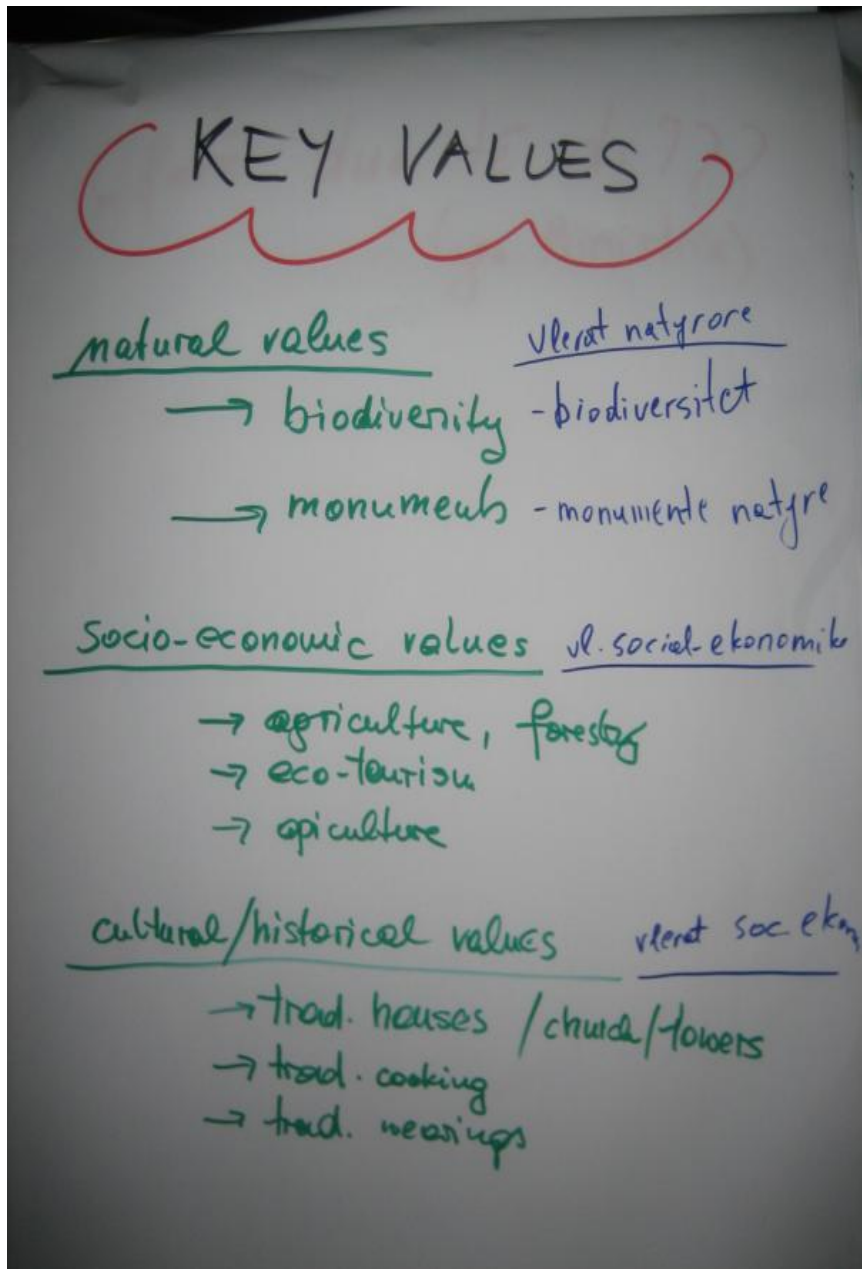 KEY VALUES
natural values vlerat natyrore
→ biodiversity - biodiversitet
→ monuments - monumente natyre
socio-economic values vl. social-ekonomik
→ agriculture, forestry
→ eco-tourism
→ apiculture
cultural/historical values vlerat soc ekon
→ trad. houses / church/towers
→ trad. cooking
→ trad. wearings